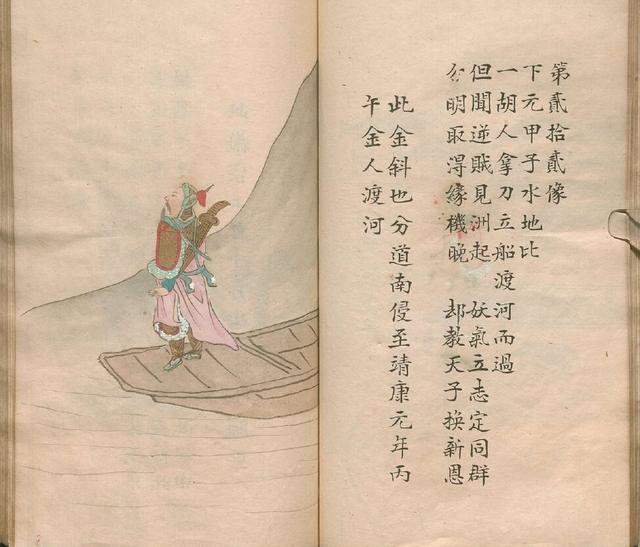 第貳拾貳像
下元甲子水地比
一胡人拿刀立船渡河而過
但聞逆賊見洲起 妖氣立志定同群
分明取得緣機晚 却教天子换新恩
此金斜也分道南侵至靖康元年丙
午金人渡河